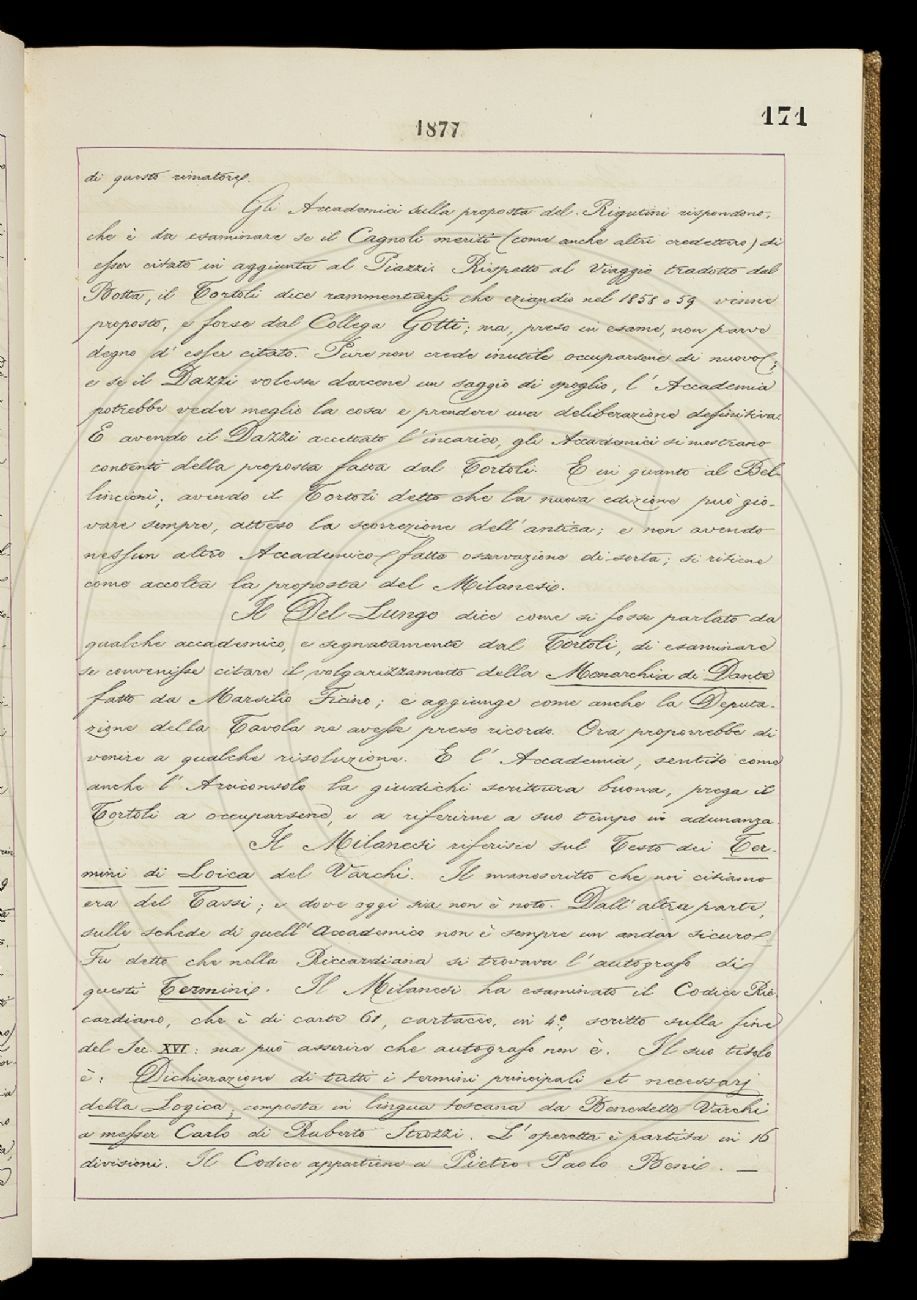 1877
171
di questo rimatore.
Gli Accademici sulla proposta del Rigutini rispondono,
che è da esaminare se il Cagnoli meriti (come anche altri credettero) di
esser citato in aggiunta al Piazzi. Rispetto al Viaggio tradotto dal
Botta, il Tortoli dice rammentarsi che eziandio nel 1858 o 59 venne
proposto, e forse dal Collega Gotti; ma, preso in esame, non parve
degno d'esser citato. Pure non crede inutile occuparsene di nuovo;
e se il Dazzi volesse darcene un saggio di spoglio, l'Accademia
potrebbe veder meglio la cosa e prendere una deliberazione definitiva.
E avendo il Dazzi accettato l'incarico, gli Accademici si mostrano
contenti della proposta fatta dal Tortoli. E in quanto al Bel-
lincioni, avendo il Tortoli detto che la nuova edizione può gio-
vare sempre, atteso la scorrezione dell'antica; e non avendo
nessun altro Accademico fatto osservazione di sorta; si ritiene
come accolta la proposta del Milanesi.
Il Del-Lungo dice come si fosse parlato da
qualche accademico, e segnatamente dal Tortoli, di esaminare
se convenisse citare il volgarizzamento della Monarchia di Dante
fatto da Marsilio Ficino; e aggiunge come anche la Deputa-
zione della Tavola ne avesse preso ricordo. Ora proporrebbe di
venire a qualche risoluzione. E l'Accademia, sentito come
anche l'Arciconsolo la giudichi scrittura buona, prega il
Tortoli a occuparsene, e a riferirne a suo tempo in adunanza.
Il Milanesi riferisce sul Testo dei Ter-
mini di Loica del Varchi. Il manoscritto che noi citiamo
era del Tassi; e dove oggi sia non è noto. Dall'altra parte,
sulle schede di quell'Accademico non è sempre un andar sicuro.
Fu detto che nella Riccardiana si trovava l'autografo di
questi Termini. Il Milanesi ha esaminato il Codice Ric-
cardiano, che è di carte 61, cartaceo, in 4º, scritto sulla fine
del Sec. XVI: ma può asserire che autografo non è. Il suo titolo
è: Dichiarazione di tutti i termini principali et necessarj
della Logica, composta in lingua toscana da Benedetto Varchi
a messer Carlo di Ruberto Strozzi. L'operetta è partita in 16
divisioni. Il Codice appartiene a Pietro Paolo Beni. —